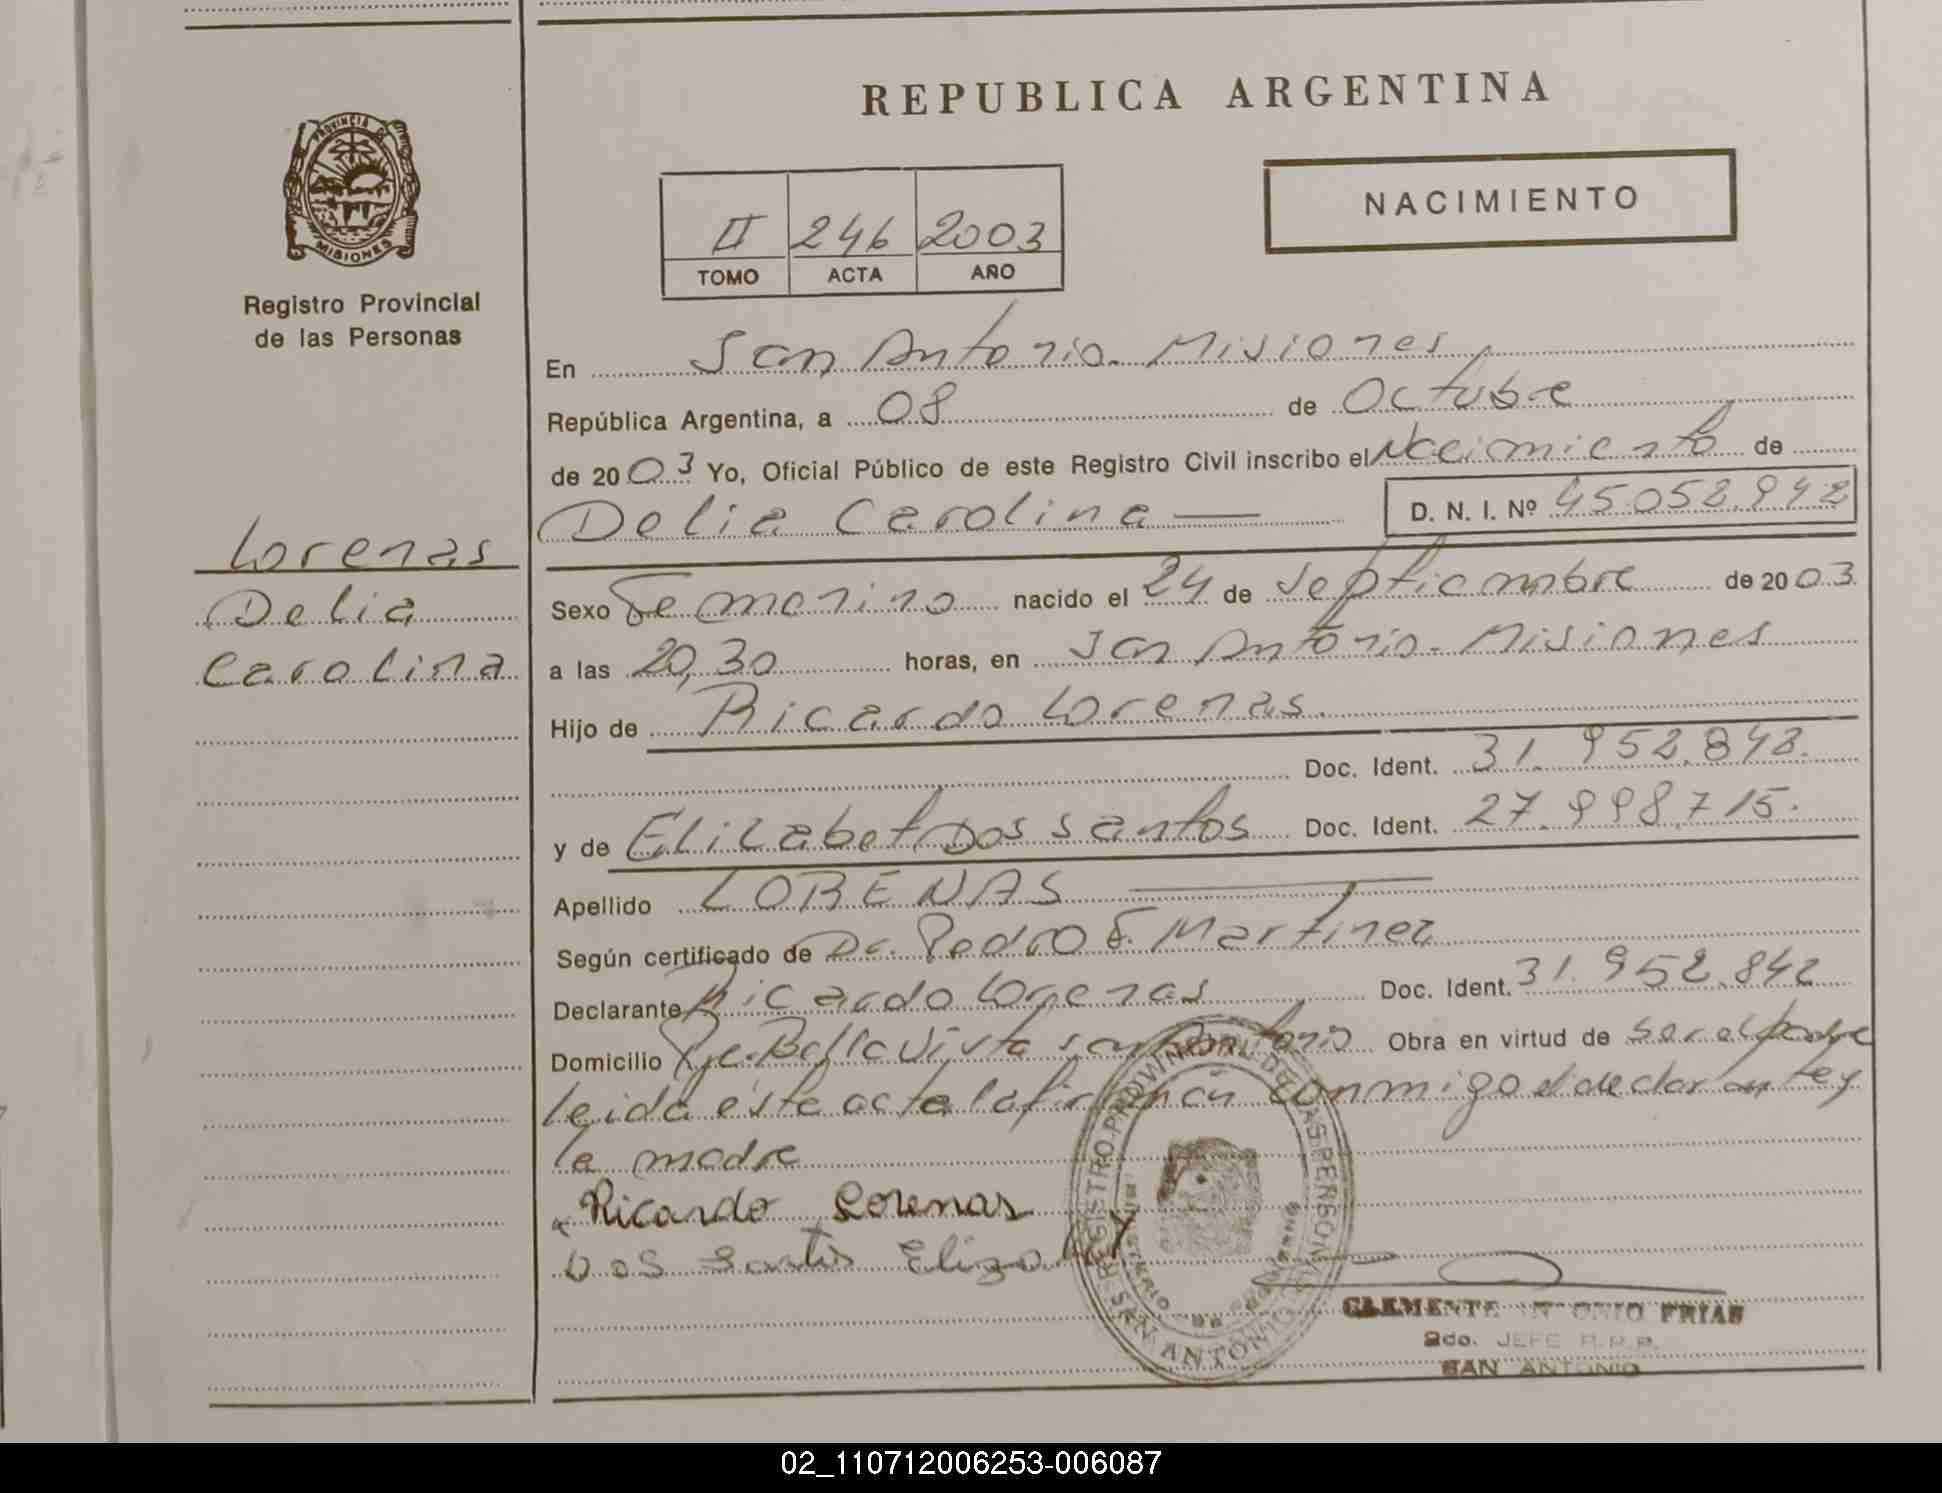 REPUBLICA ARGENTINA
PROVINCIA DE
MISIONES
Registro Provincial
de las Personas
NACIMIENTO
II 246 2003
TOMO ACTA AÑO
En San Antonio. Misiones
República Argentina, a 08 de Octubre
de 2003 Yo, Oficial Público de este Registro Civil inscribo el Nacimiento de
Delia Carolina — D. N. I. Nº 45.052.942
Lorenas
Delia
Carolina
Sexo Femenino nacido el 24 de Septiembre de 2003
a las 20,30 horas, en San Antonio. Misiones
Hijo de Ricardo Lorenas.
Doc. Ident. 31.952.842.
y de Elizabet Dos santos Doc. Ident. 27.998.715.
Apellido LORENAS
Según certificado de Dr. Pedro F. Martinez
Declarante Ricardo Lorenas Doc. Ident. 31.952.842
Domicilio Pje. Bella Vista San Antonio Obra en virtud de ser el padre
leida ésta acta la firman conmigo el declarante y
la madre
Ricardo Lorenas
Dos Santos
REGISTRO PROVINCIAL DE LAS PERSONAS
SAN ANTONIO
CLEMENTE ANTONIO FRIAS
2do. JEFE R.P.P.
SAN ANTONIO
02_110712006253-006087